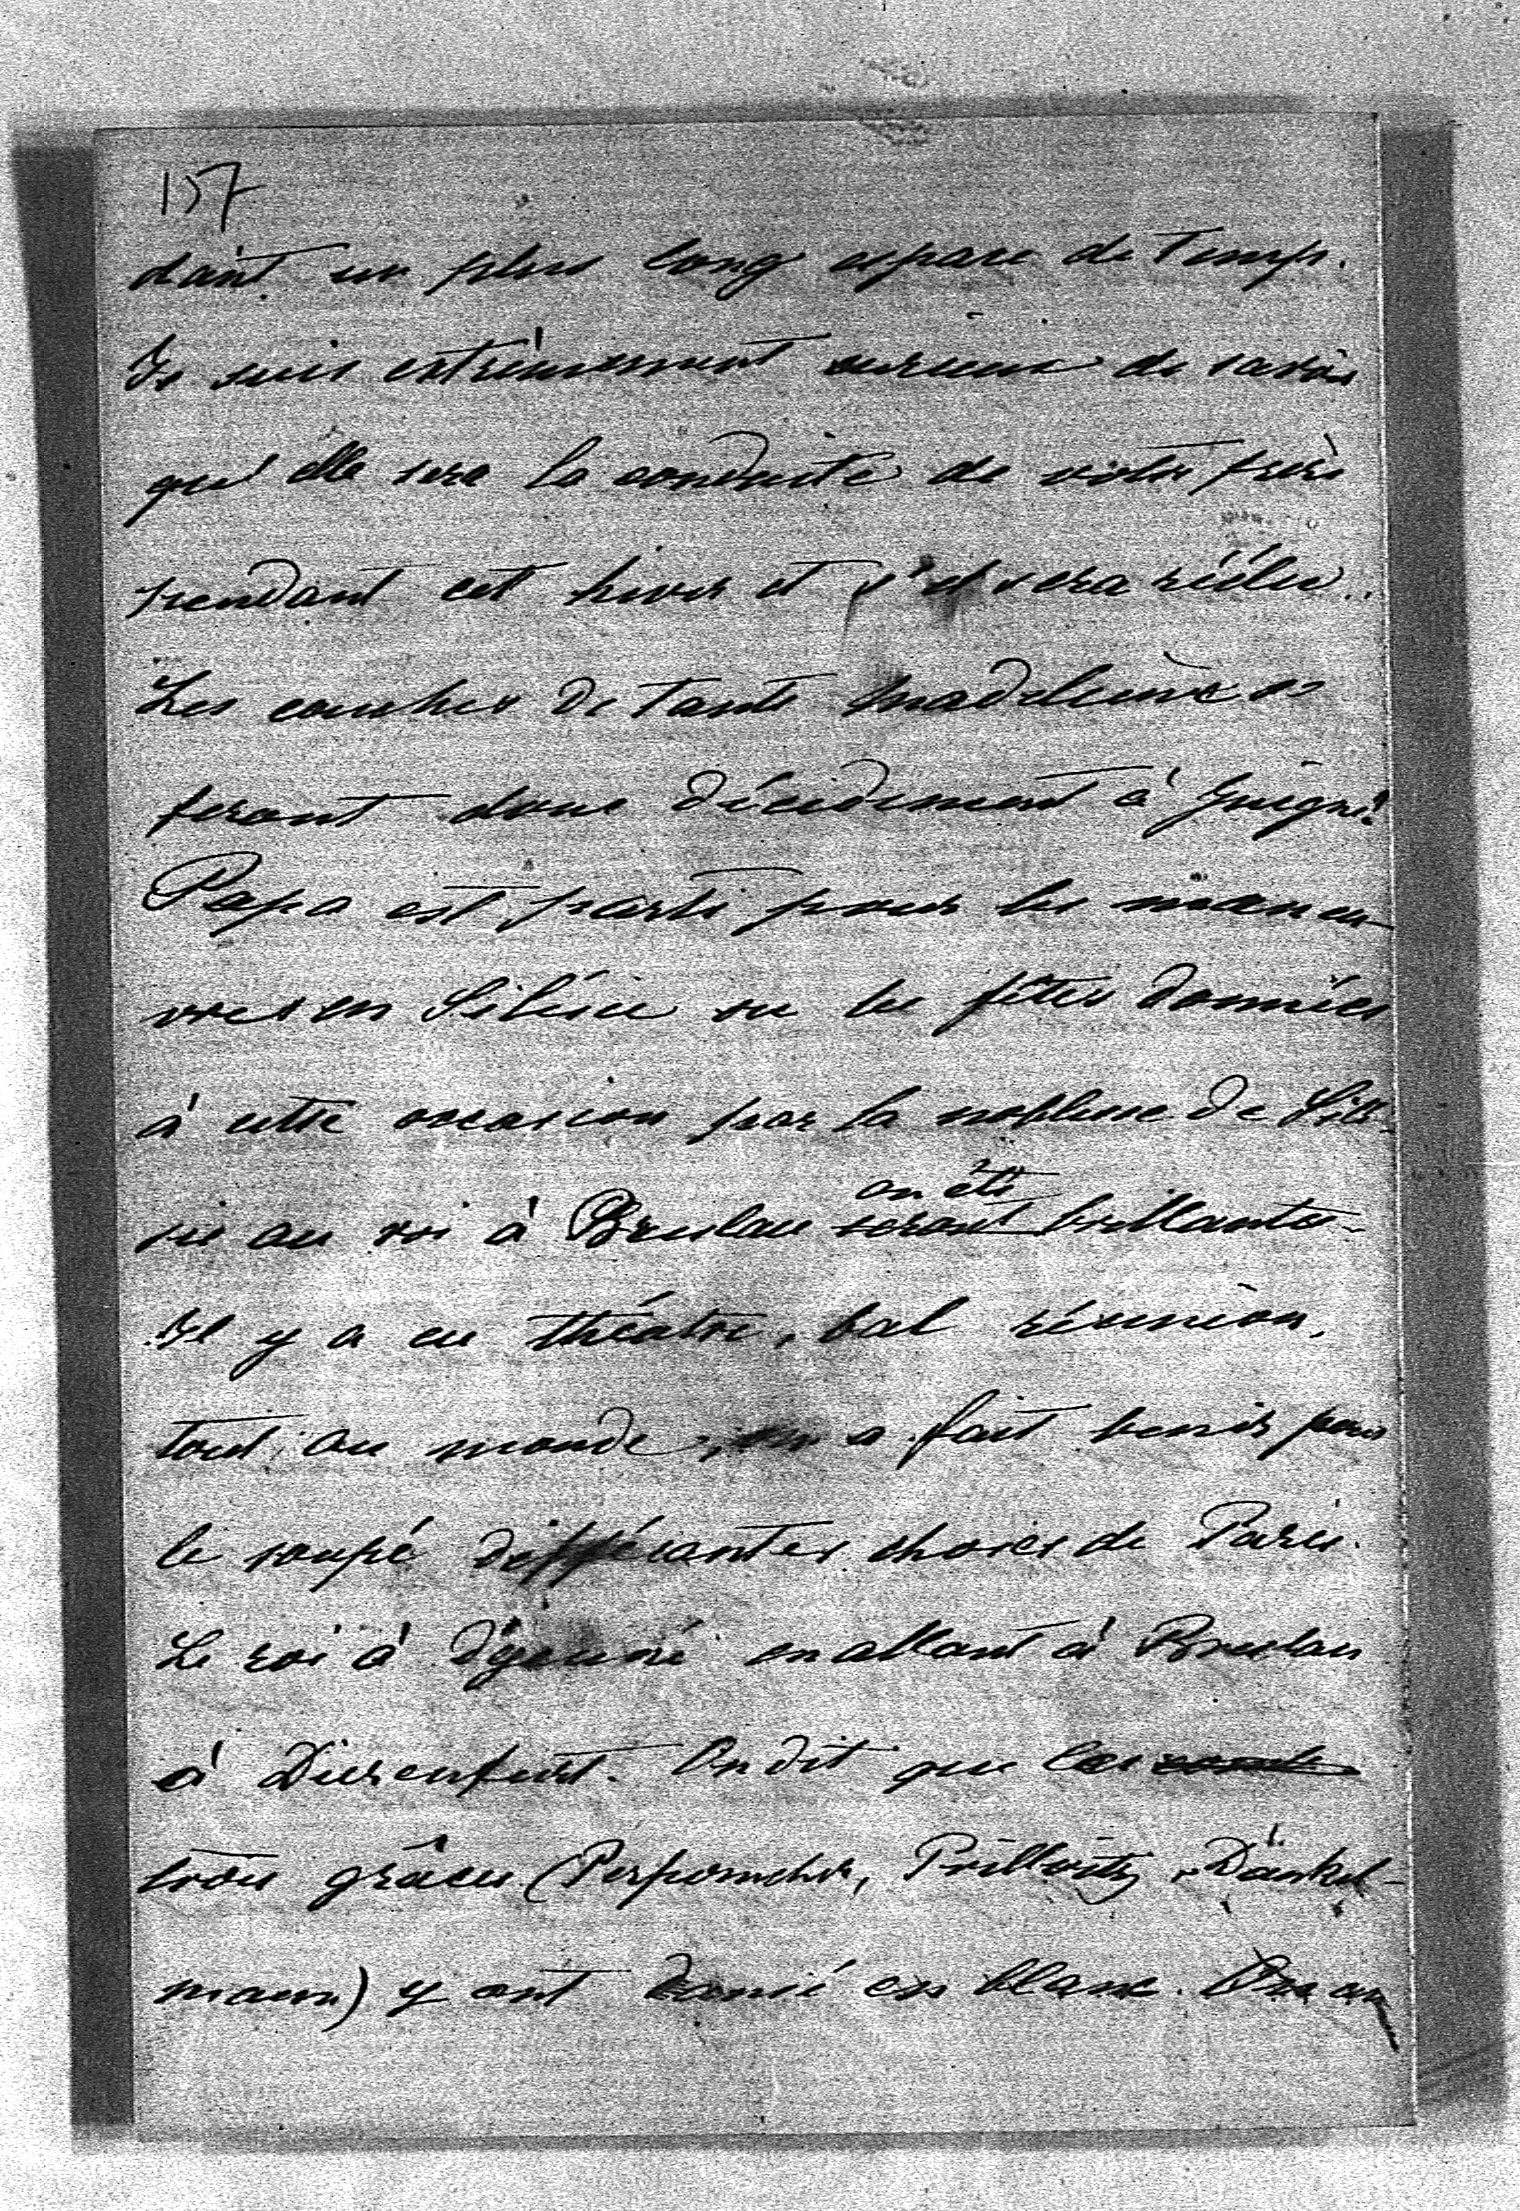 157
dant un plus long espace de temps.
Je suis extrêmement curieux de savoir
qu'elle sera la conduite de votre frère
pendant cet hiver et s'il sera réélu..
Les couches de tante Madeleine se
feront donc décidement à Guigne?
Papa est parti pour les manœu-
vres en Silésie ou les fêtes données
à cette occasion par la noblesse de Silé-
sie au roi à Breslau seront on été brillantes.
Il y a eu théatre, bal réunion,
tout au monde, on a fait venir pour
le soupé différantes choses de Paris.
Le roi à déjeuné en allant à Breslau
à Diesenfurt. On dit que les
trois grâces (Perponcher, Prillwitz, Dänkel-
mann) y ont dansé en blanc.